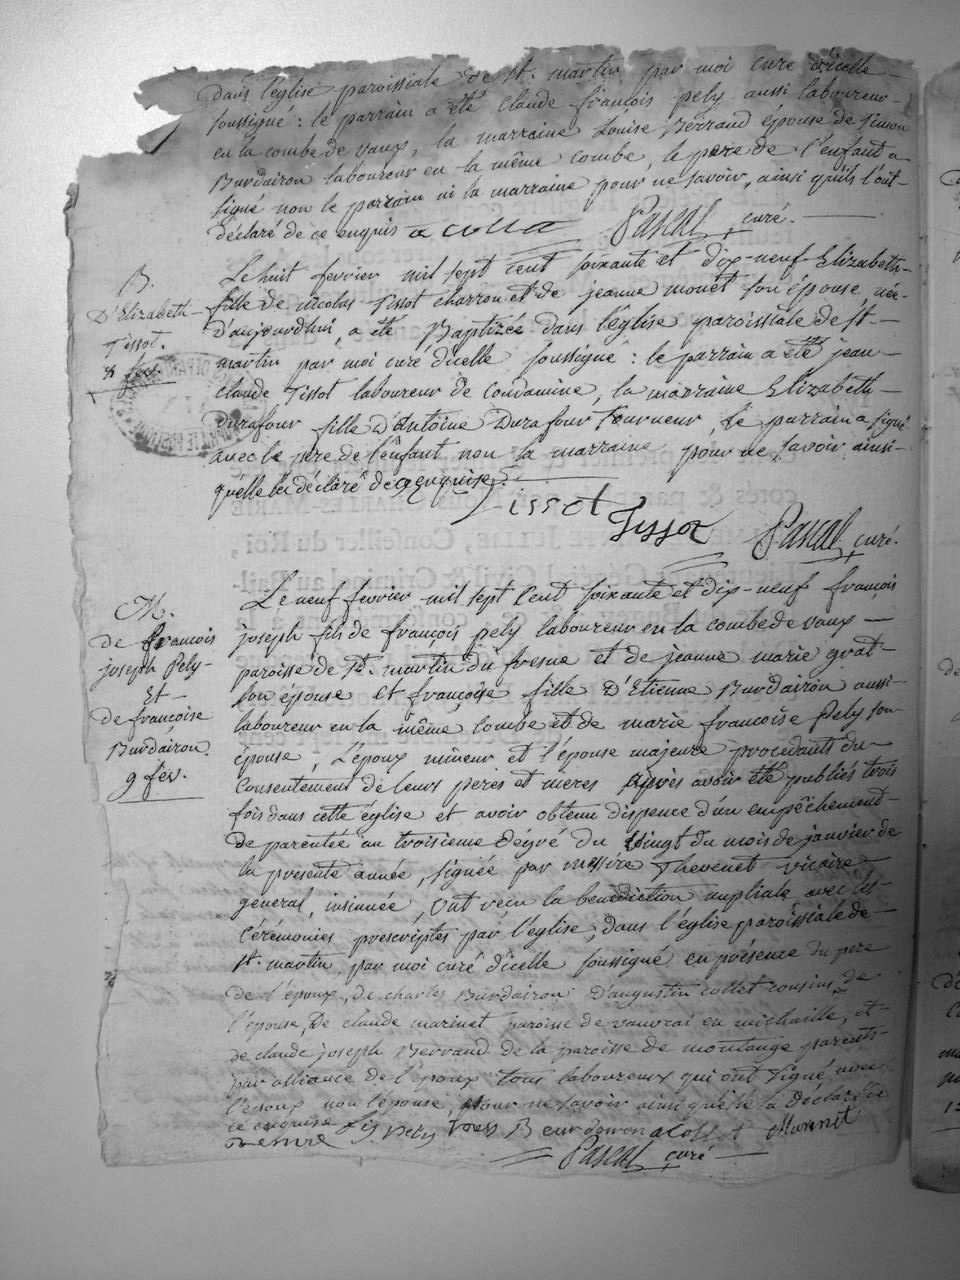 dans l'église paroissiale de St. martin par moi curé d'icelle
soussigné : le parrain a été claude françois pely aussi laboureur
en la combe de vaux, la marraine Louise Berrand épouse de simon
Burdairon laboureur en la même combe, le pere de l'enfant a
signé non le parrain ni la marraine pour ne savoir, ainsi qu'ils l'ont
déclaré de ce enquis Pascal curé.
B.
D'Elizabeth
Tissot.
8 fev.
Le huit fevrier mil sept cent soixante et dix-neuf Elizabeth
fille de nicolas Tissot charron et de jeanne monet son épouse, née
d'aujourdhui, a été Baptizée dans l'église paroissiale de St.
martin par moi curé d'icelle soussigné : le parrain a été jean
claude Tissot laboureur de Condamine, la marraine Elizabeth
Durafour fille d'Antoine Durafour Tourneur, le parrain a signé
avec le pere de l'enfant non la marraine pour ne savoir ainsi
qu'elle l'a déclaré de ce enquise
Tissot Tissot Pascal curé.
M.
de françois
joseph Pely
Et
de françoise
Burdairon.
9 fév.
Le neuf fevrier mil sept cent soixante et dix-neuf françois
joseph fils de françois pely laboureur en la combe de vaux
paroisse de St. martin du fresne et de jeanne marie grat
son épouse et françoise fille d'Etienne Burdairon aussi
laboureur en la même combe et de marie françoise Pely son
épouse, l'époux mineur et l'épouse majeure procedants du
consentement de leurs peres et meres après avoir été publiés trois
fois dans cette église et avoir obtenu dispence d'un empêchement
de parentée au troisieme dégré du vingt du mois de janvier de
la presente année, signée par messire Thevenet vicaire
général, insinuée, ont reçu la bénédiction nuptiale avec les
cérémonies prescriptes par l'église, dans l'église paroissiale de
St. martin, par moi curé d'icelle soussigné en présence du pere
de l'époux, de charles Burdairon d'augustin collet cousins de
l'épouse, de claude marinet paroisse de vauvrai en michaille, et
de claude joseph Berrand de la paroisse de montange parents
par alliance de l'époux tous laboureurs qui ont signé avec
l'époux non l'épouse, pour ne savoir ainsi qu'elle l'a déclaré de
ce enquise
Pascal curé